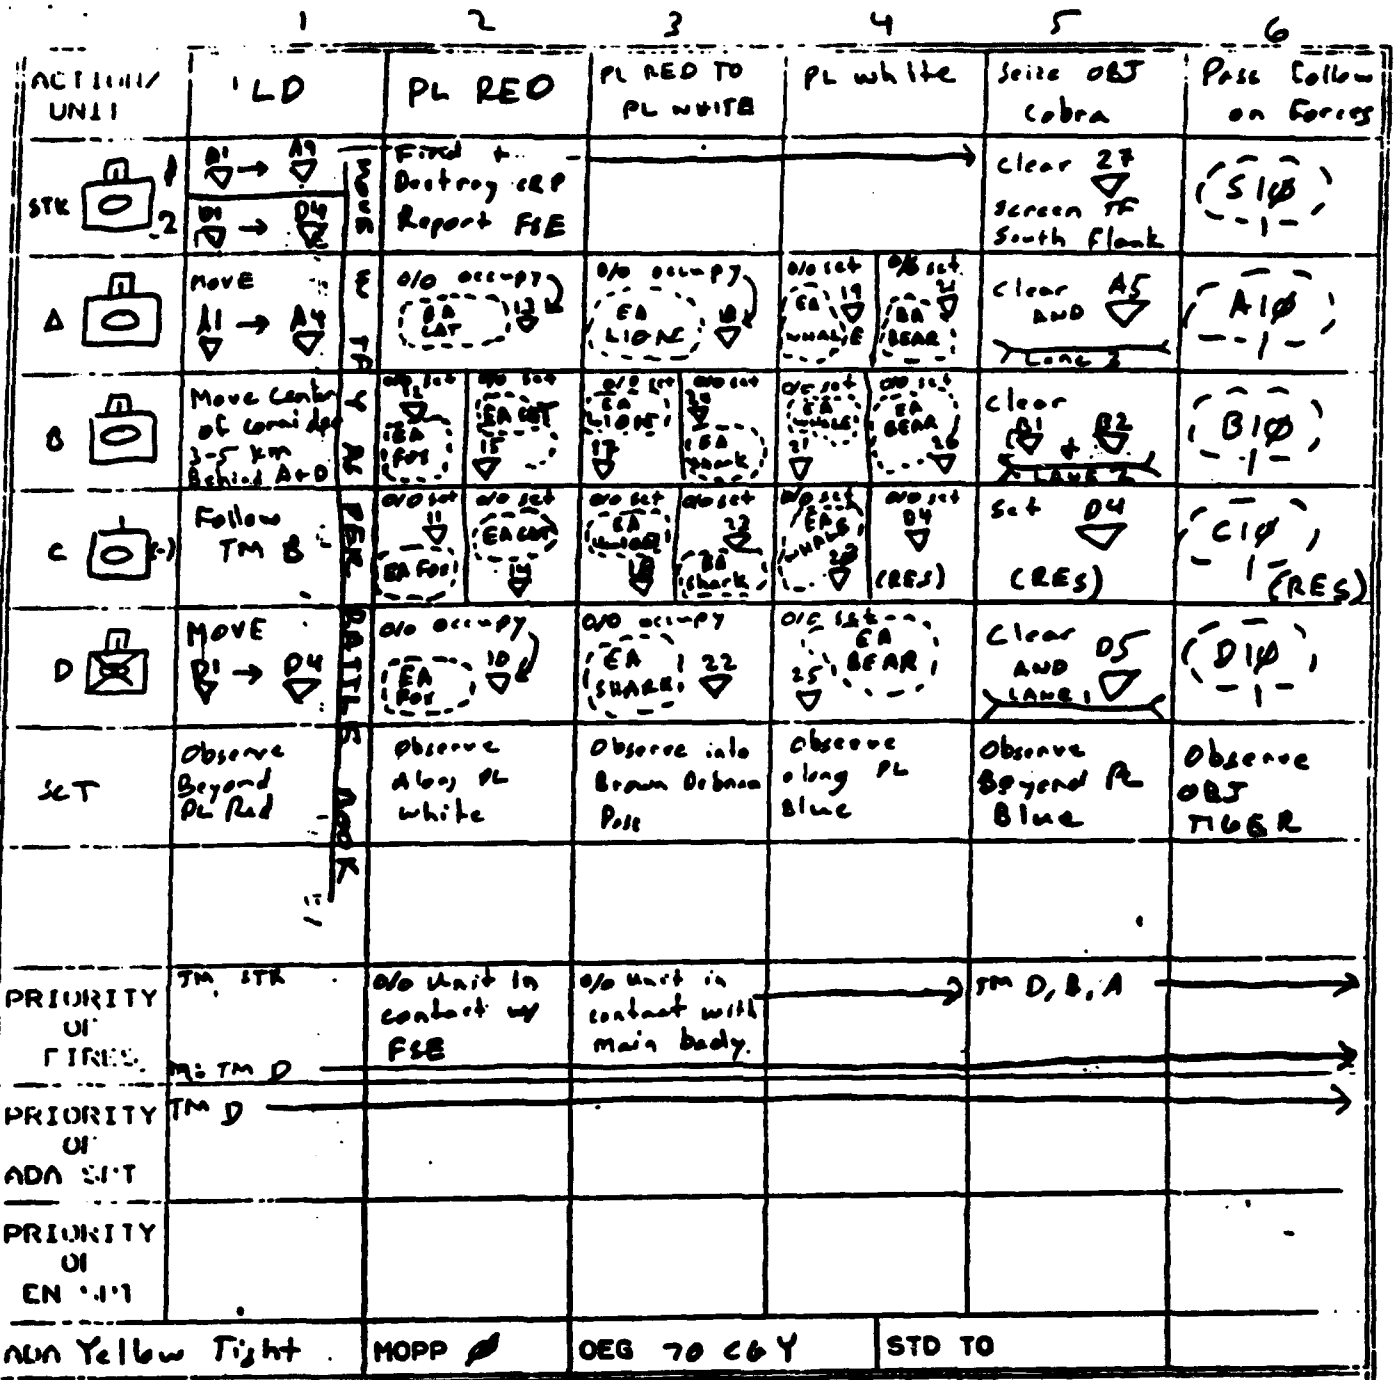 1 2 3 4 5 6
ACTION/
UNIT
LD
PL RED
PL RED TO
PL WHITE
PL white
Seize OBJ
Cobra
Pass Follow
on Forces
STK
1
2
A1 → A9
D1 → D4
Find +
Destroy CRP
Report FSE
Clear 27
Screen TF
South Flank
S1Ø
A
MOVE
A1 → A4
O/O occupy
EA
CAT
13
O/O occupy
EA
LION
18
O/O set
EA
WHALE
19
O/O set
EA
BEAR
Clear A5
AND
LANE 3
A1Ø
B
Move Center
of corridor
3-5 km
Behind A+D
O/O set
12
EA
FOX
O/O set
EA CAT
15
O/O set
EA
LION
17
O/O set
EA
shark
O/O set
EA
WHALE
21
O/O set
EA
BEAR
26
Clear
B1 + B2
LANE 2
B1Ø
C (-)
Follow
TM B
O/O set
11
EA FOX
O/O set
EA CAT
14
O/O set
EA
O/O set
23
EA
Shark
O/O set
EA
WHALE
O/O set
D4
(RES)
Set D4
(RES)
C1Ø
(RES)
D
MOVE
D1 → D4
O/O occupy
EA
FOX
10
O/O occupy
EA
SHARK
22
O/O set
EA
BEAR
25
Clear
AND D5
LANE 1
D1Ø
MOVE
AS PER BATTLE BOOK
SCT
Observe
Beyond
PL Red
Observe
Along PL
white
Observe into
Brown Debnam
Pass
Observe
along PL
Blue
Observe
Beyond PL
Blue
Observe
OBJ
TIGER
PRIORITY
OF
FIRES
TM STK
M: TM D
O/O Unit in
contact w/
FSE
O/O Unit in
contact with
main body.
TM D, B, A
PRIORITY
OF
ADA SPT
TM D
PRIORITY
OF
EN SPT
ADA Yellow Tight
MOPP Ø
OEG 70 CGY
STD TO